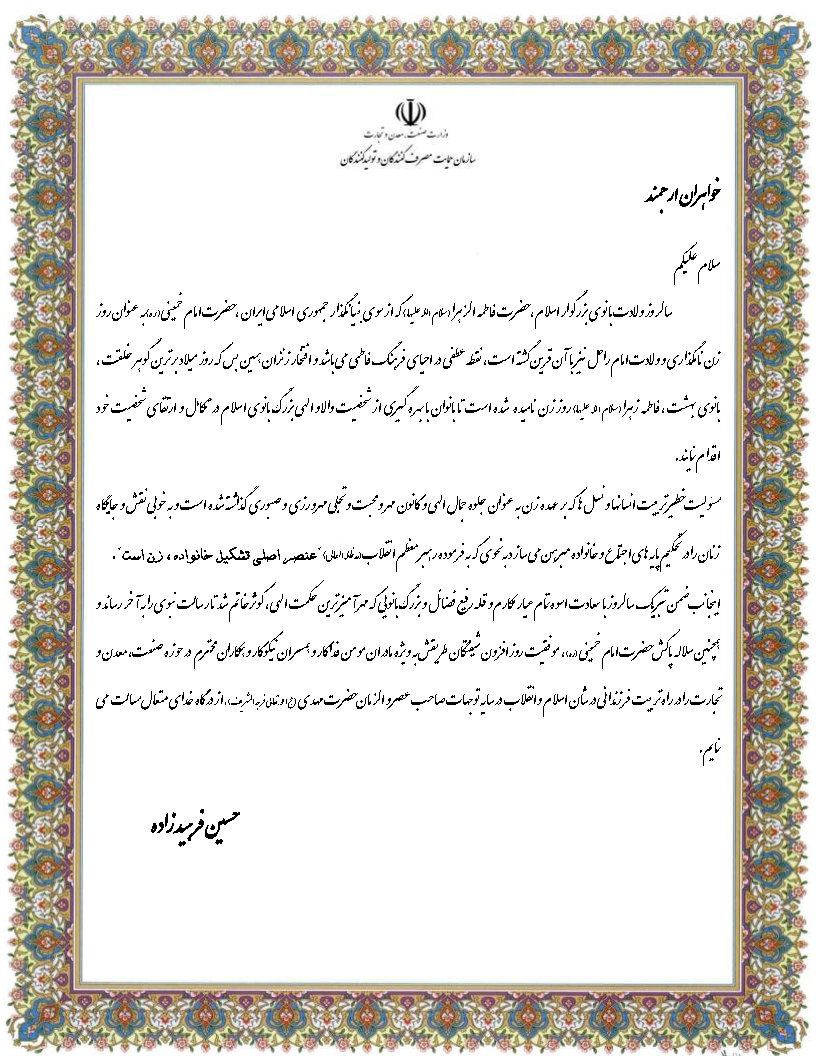 وزارت صنعت، معدن و تجارت
سازمان حمایت مصرف کنندگان و تولیدکنندگان
خواهران ارجمند
سلام علیکم
سالروز ولادت بانوی بزرگوار اسلام ،حضرت فاطمه الزهرا (سلام الله علیها) که از سوی بنیانگذار جمهوری اسلامی ایران ،حضرت امام خمینی (ره) به عنوان روز
زن نامگذاری و ولادت امام راحل نیز با آن قرین گشته است، نقطه عطفی در احیای فرهنگ فاطمی می باشد و افتخار زنان همین بس که روز میلاد برترین گوهر خلقت ،
بانوی بهشت ، فاطمه زهرا (سلام الله علیها) روز زن نامیده شده است تا بانوان با بهره گیری از شخصیت والا و الهی بزرگ بانوی اسلام در تکامل و ارتقای شخصیت خود
اقدام نمایند.
مسئولیت خطیر تربیت انسانها و نسل ها که بر عهده زن به عنوان جلوه جمال الهی و کانون مهر و محبت و تجلی مهرورزی و صبوری گذاشته شده است و به خوبی نقش و جایگاه
زنان را در تحکیم پایه های اجتماع و خانواده مبرهن می سازد به نحوی که به فرموده رهبر معظم انقلاب (مدظله العالی) "عنصر اصلی تشکیل خانواده ، زن است" .
اینجانب ضمن تبریک سالروز با سعادت اسوه تمام عیار مکارم و قله رفیع فضائل و بزرگ بانویی که مهرآمیزترین حکمت الهی، کوثر خاتم شد تا رسالت نبوی را به آخر رساند و
همچنین سلاله پاکش حضرت امام خمینی (ره)، موفقیت روز افزون شیفتگان طریقتش به ویژه مادران مومن فداکار و همسران نیکوکار و همکاران محترم در حوزه صنعت، معدن و
تجارت را در راه تربیت فرزندانی در شان اسلام و انقلاب در سایه توجهات صاحب عصر و الزمان حضرت مهدی (عج الله تعالی فرجه الشریف)، از درگاه خدای متعال مسالت می
نمایم.
حسین فرهیدزاده